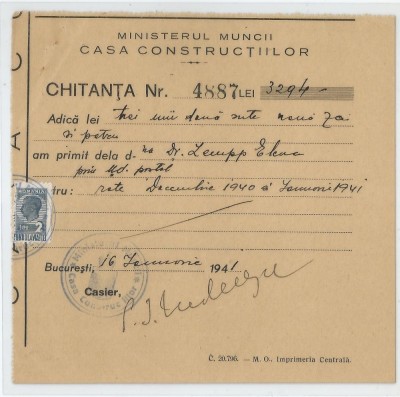 MINISTERUL MUNCII
CASA CONSTRUCȚIILOR
CHITANȚA Nr. 4887 LEI 3294
Adică lei trei mii două sute nouă zeci
și patru
am primit dela d-na Dr. Zempp Elena
prin M. postal
rate Decembrie 1940 și Ianuarie 1941
București, 16 Ianuarie 1941
Casier,
ROMANIA
LEI 2
Č. 20.796. — M. O., Imprimeria Centrală.